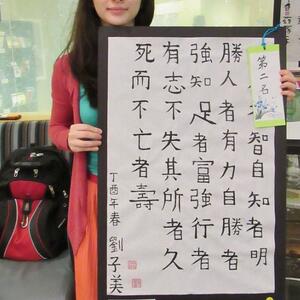 第二名
智自知者明
勝人者有力自勝者
強知足者富強行者
有志不失其所者久
死而不亡者壽
丁酉年春 劉子美